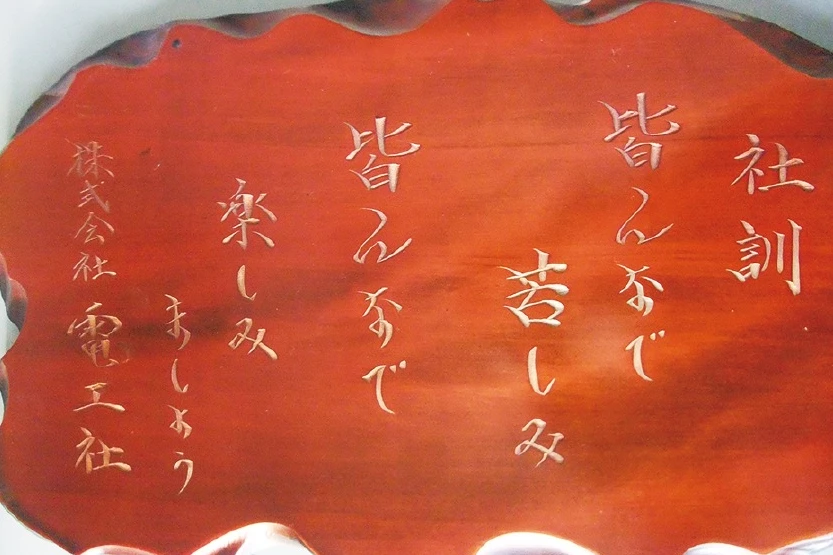 社訓
皆んなで
苦しみ
皆んなで
楽しみ
ましょう
株式会社 電工社